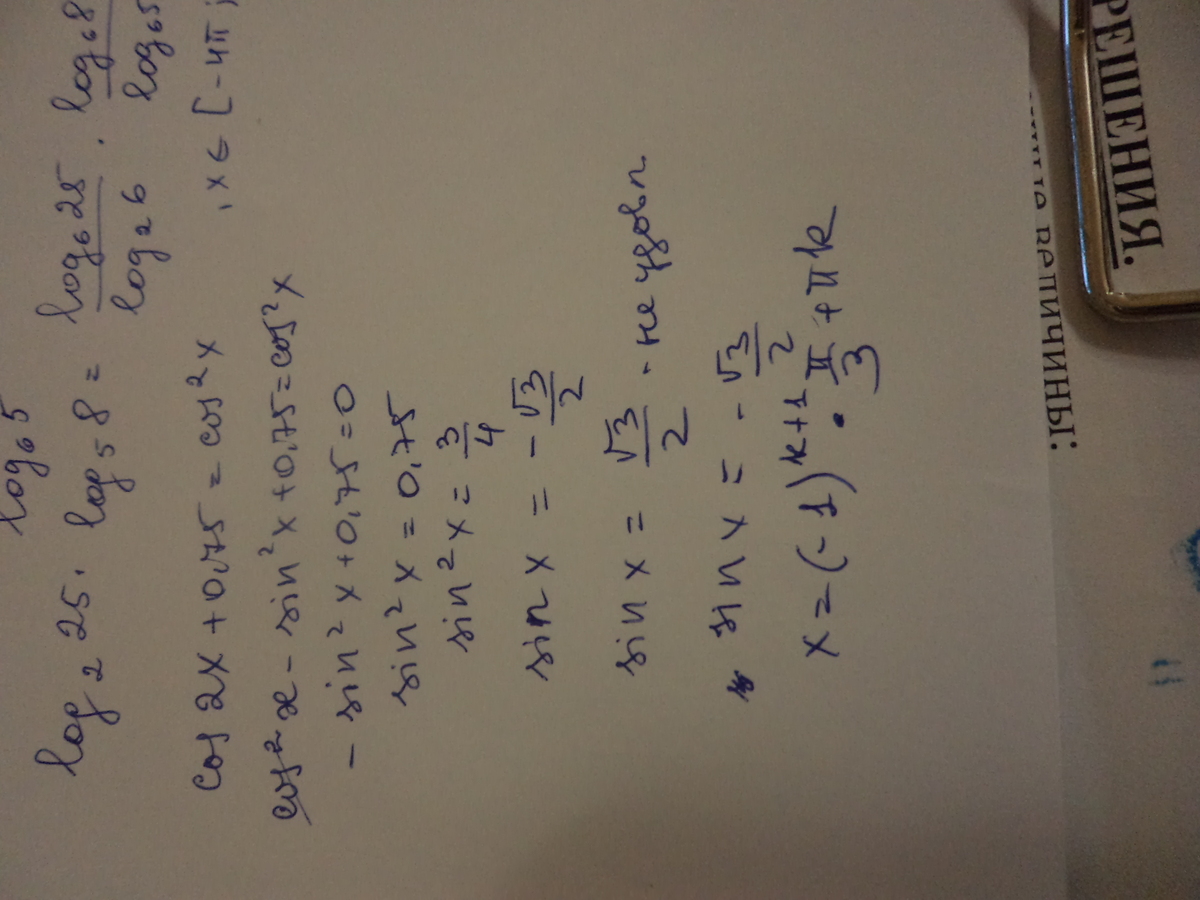 log₆5
log₂25 · log₅8 = log₆25/log₂6 · log₆8/log₆5
cos2x + 0,75 = cos²x , x ∈ [-4π;
cos²x - sin²x + 0,75 = cos²x
- sin²x + 0,75 = 0
sin²x = 0,75
sin²x = 3/4
sin x = - √3/2
sin x = √3/2 - не удовл
sin x = - √3/2
x = (-1)ᵏ⁺¹ · π/3 + πk
величины:
РЕШЕНИЯ.